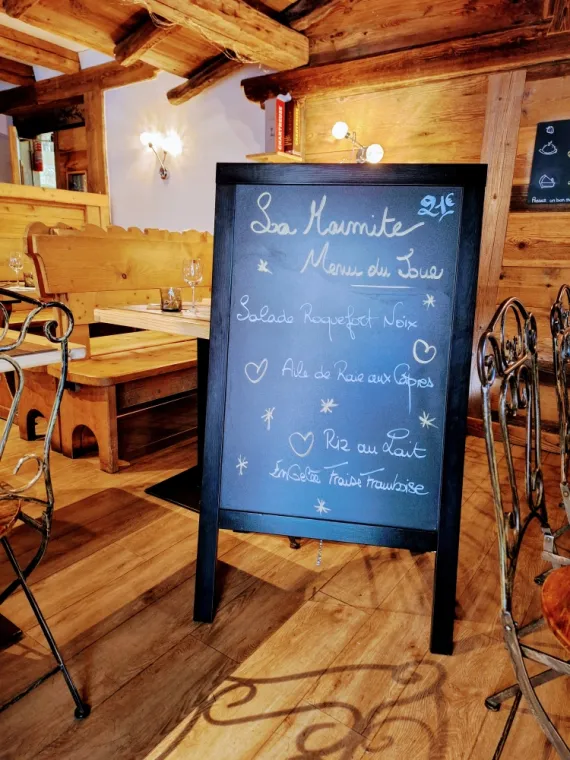 La Marmite
21€
Menu du Jour
Salade Roquefort Noix
Aile de Raie aux Câpres
Riz au Lait